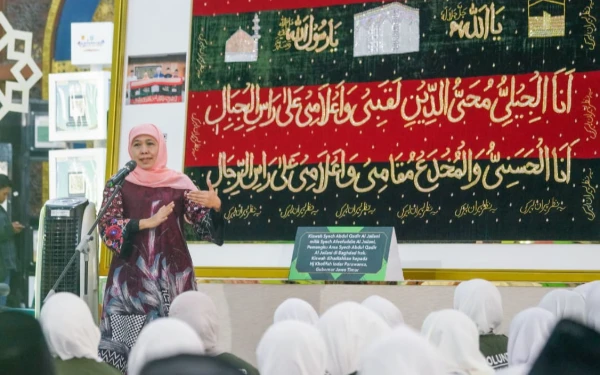 يارسول الله
ياالله
اَنَا الْجِيلِيُّ مُحْيُ الدِّينِ لَقَبِي وَاَعْلَامِي عَلَى رَاسِ الْجِبَالِ
اَنَا الْحَسَنِيُّ وَالْمُخْدَعُ مَقَامِي وَاَعْلَامِي عَلَى رَاسِ الرِّجَالِ
Kiswah Syech Abdul Qodir Al Jailani
milik Syech Afeefuddin Al Jailani,
Pemangku Area Syech Abdul Qodir
Al Jailani di Baghdad Irak.
Kiswah dihadiahkan kepada
Hj Khofifah Indar Parawansa,
Gubernur Jawa Timur